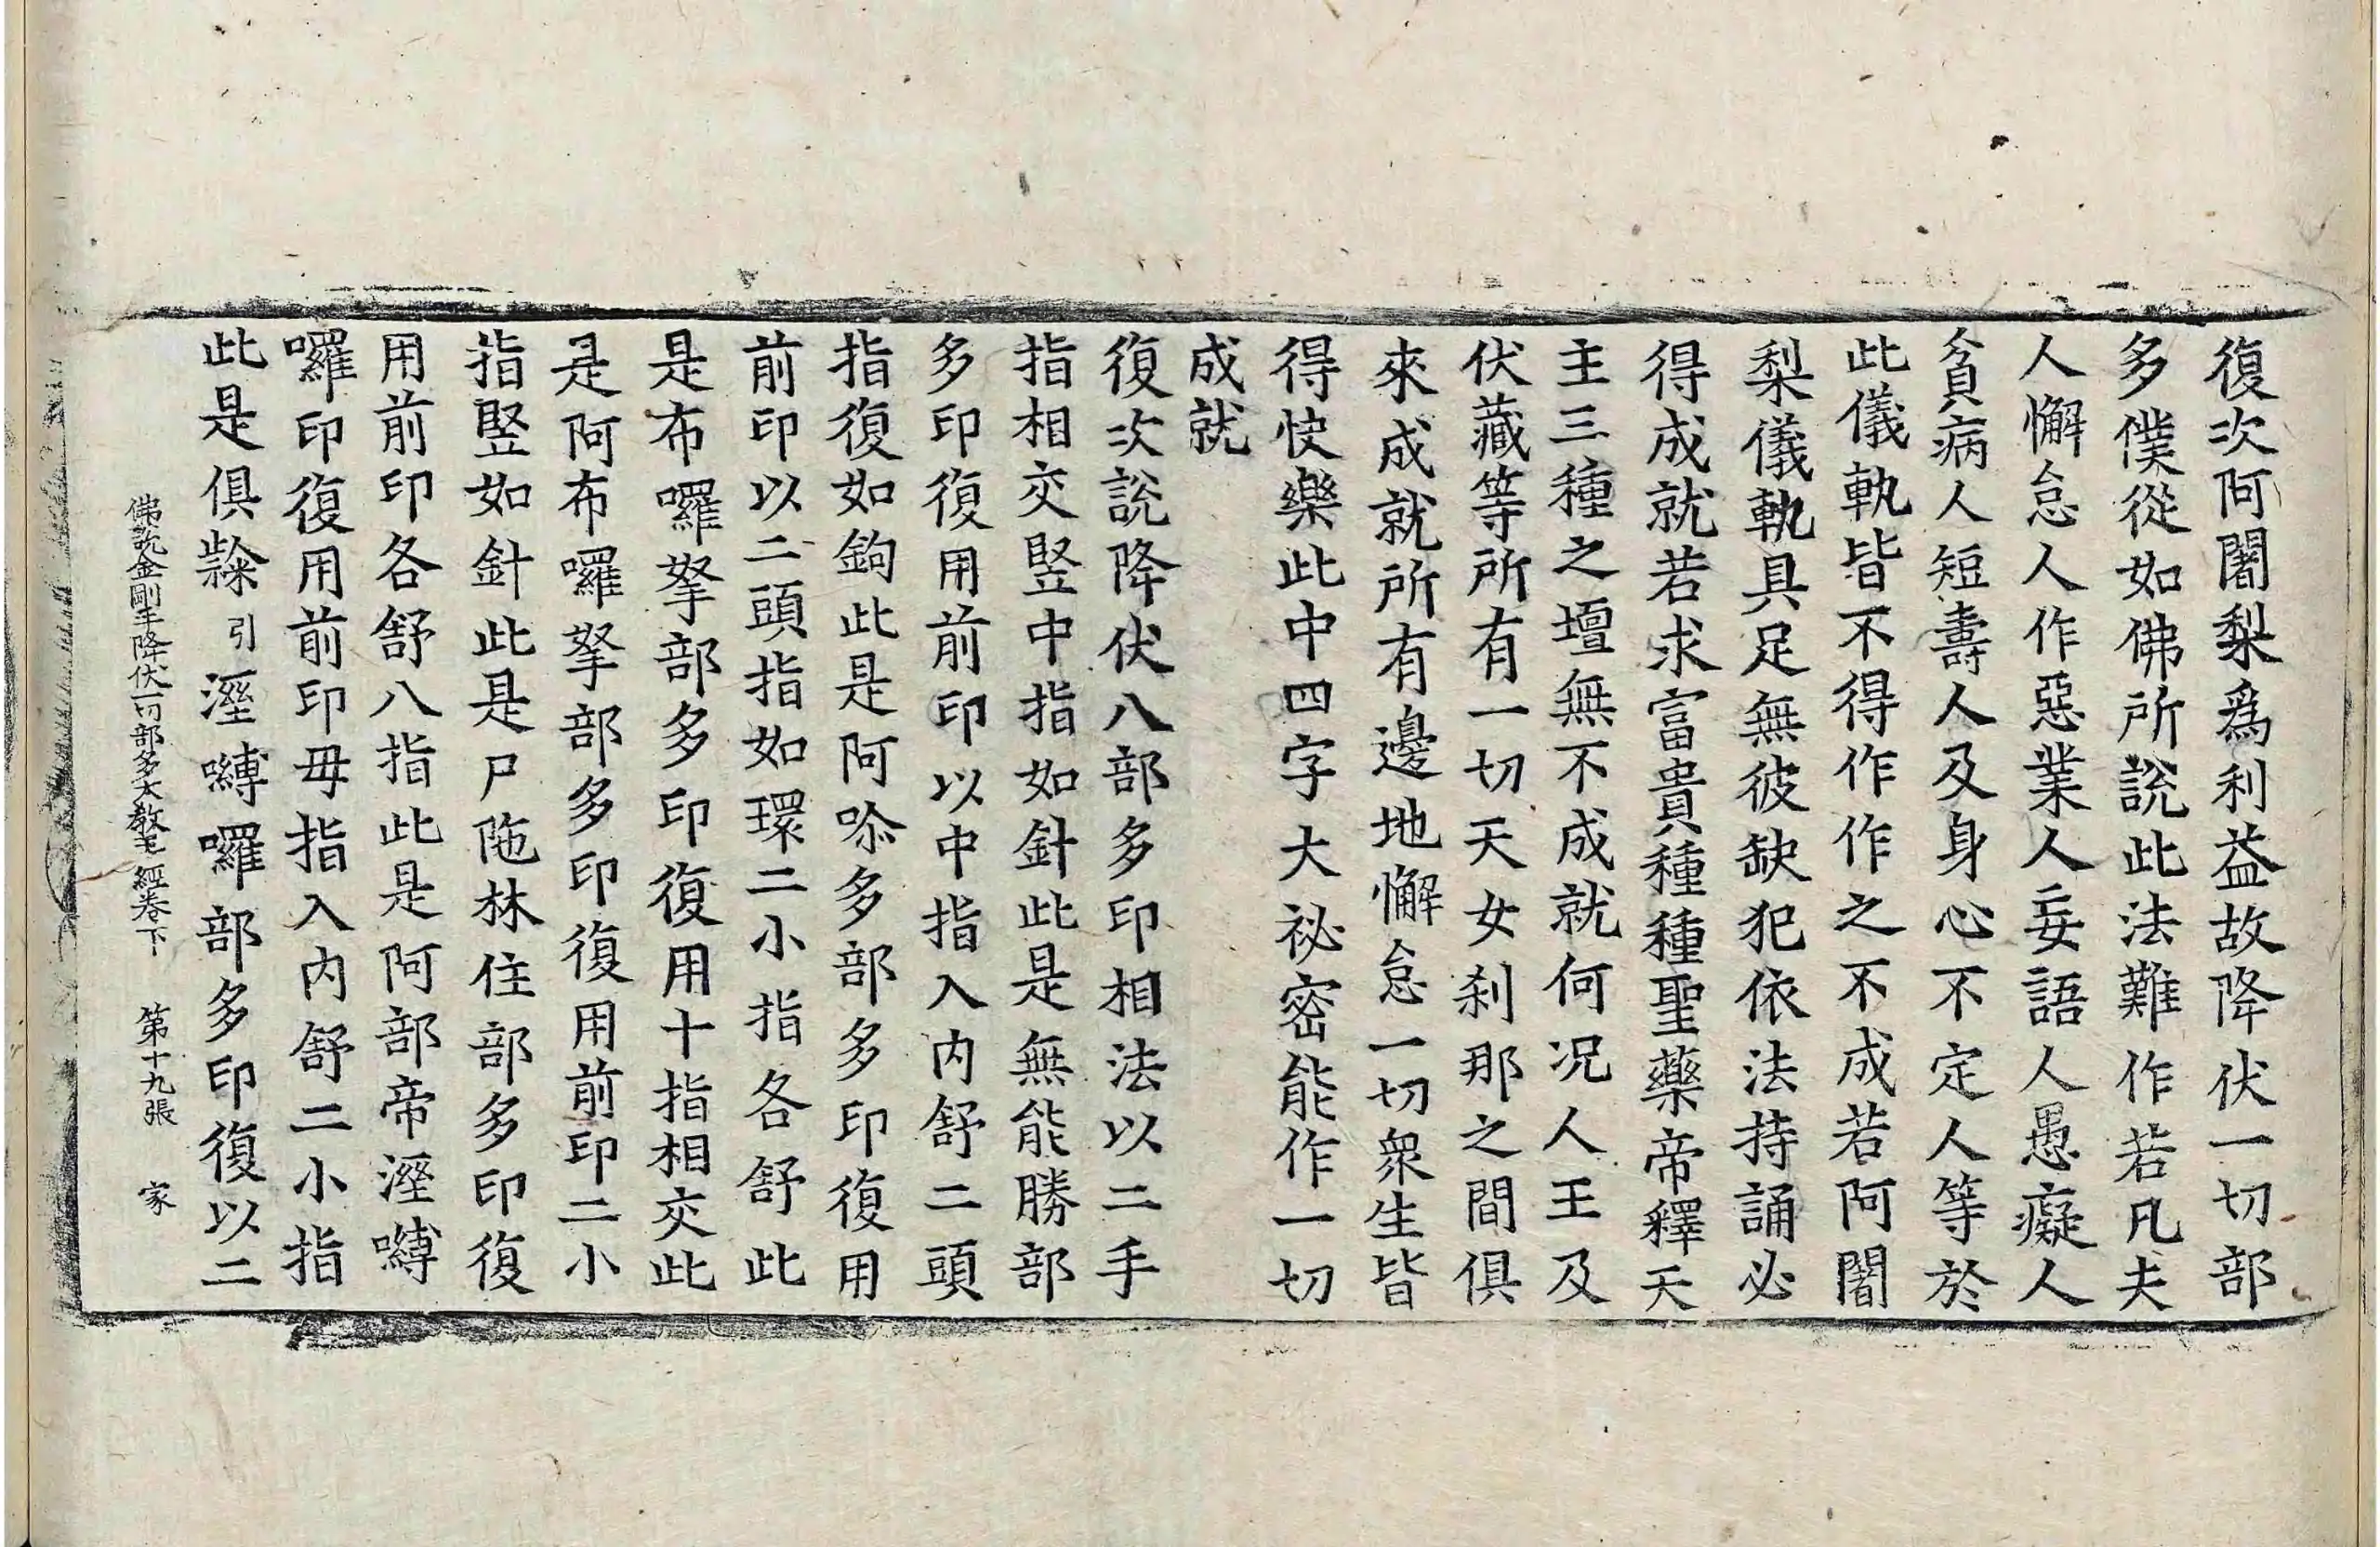 復次阿闍梨爲利益故降伏一切部
多僕從如佛所說此法難作若凡夫
人懈怠人作惡業人妄語人愚癡人
貧病人短壽人及身心不定人等於
此儀軌皆不得作作之不成若阿闍
梨儀軌具足無彼缺犯依法持誦必
得成就若求富貴種種聖藥帝釋天
主三種之壇無不成就何況人王及
伏藏等所有一切天女刹那之間俱
來成就所有邊地懈怠一切衆生皆
得快樂此中四字大祕密能作一切
成就
復次說降伏八部多印相法以二手
指相交竪中指如針此是無能勝部
多印復用前印以中指入内舒二頭
指復如鉤此是阿㖮多部多印復用
前印以二頭指如環二小指各舒此
是布囉拏部多印復用十指相交此
是阿布囉拏部多印復用前印二小
指竪如針此是尸陁林住部多印復
用前印各舒八指此是阿部帝溼嚩
囉印復用前印毋指入内舒二小指
此是俱㰣引溼嚩囉部多印復以二
佛說金剛手降伏一切部多大教王經卷下 第十九張 家